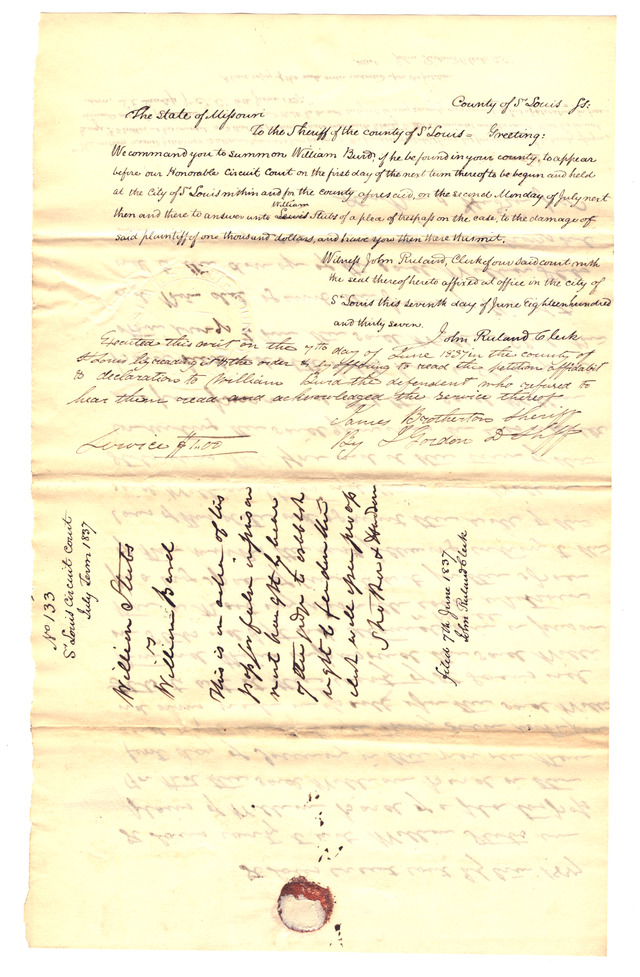 County of St Louis Ss:
The State of Missouri
To the Sheriff of the county of St Louis = Greeting:
We command you to summon William Burd, if he be found in your county, to appear
before our Honorable Circuit Court on the first day of the next term thereof to be begun and held
at the City of St Louis within and for the county aforesaid, on the second Monday of July next
William
then and there to answer unto Lewis Stubs of a plea of trespass on the case, to the damage of
said plaintiff of one thousand dollars, and have you then there this writ.
Witness John Ruland, Clerk of our said court with
the seal thereof hereto affixed at office in the city of
St Louis this seventh day of June Eighteen hundred
and thirty seven.
John Ruland Clerk
Executed this writ on the 7th day of June 1837 in the county of
St Louis by reading the order & by offering to read the petition affidabit
& declaration to William Burd the defendent who refused to
hear them read and acknowledged the service thereof
James Brotherton Sheriff
By J Gordon D Shff
Service $1.00
No 133
St Louis Circuit Court
July Term 1837
William Stubs
vs
William Burd
This is an action of tres
pass for false imprison
ment brought to hear
of the
right to freedom the
clerk will open process
filed 7th June 1837
John Ruland Clerk